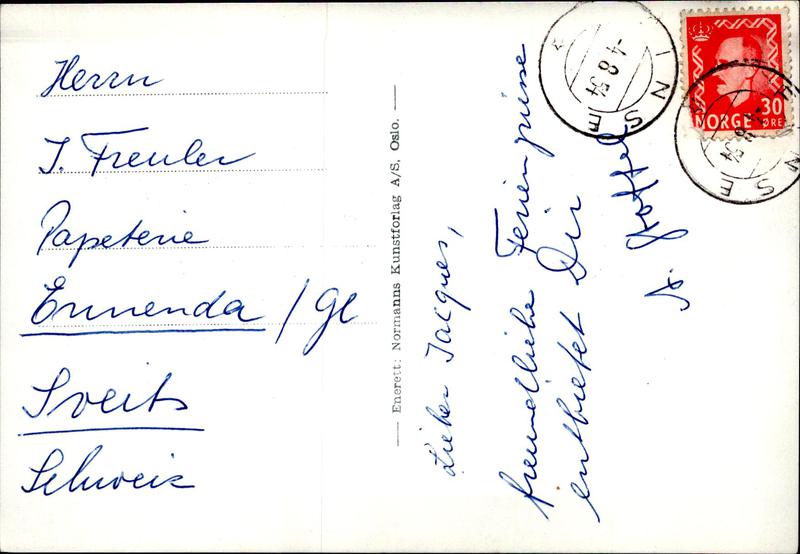 Herrn
J. Freuler
Papeterie
Ennenda / Gl
Sveits
Schweiz
Enerett: Normanns Kunstforlag A/S, Oslo.
Lieber Jacques,
freundliche Feriengrüsse
entbietet Dir
A. Stoffel
INSE
-4.8.54
NORGE 30
ØRE
NSE
8.54